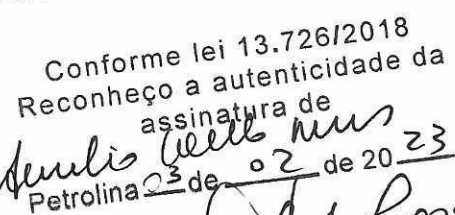 Conforme lei 13.726/2018
Reconheço a autenticidade da
assinatura de
Petrolina 03 de 02 de 20 23